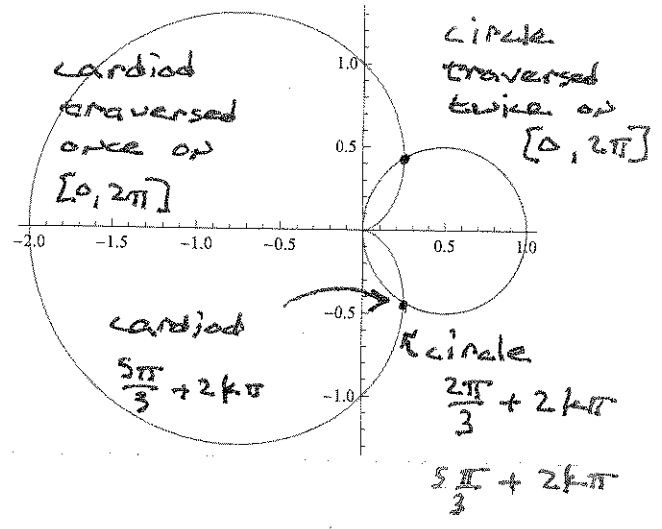 cardiod
traversed
once on
[0, 2π]
circle
traversed
twice on
[0, 2π]
1.0
0.5
-2.0 -1.5 -1.0 -0.5 0.5 1.0
-0.5
-1.0
cardiod
5π/3 + 2kπ
circle
2π/3 + 2kπ
5π/3 + 2kπ